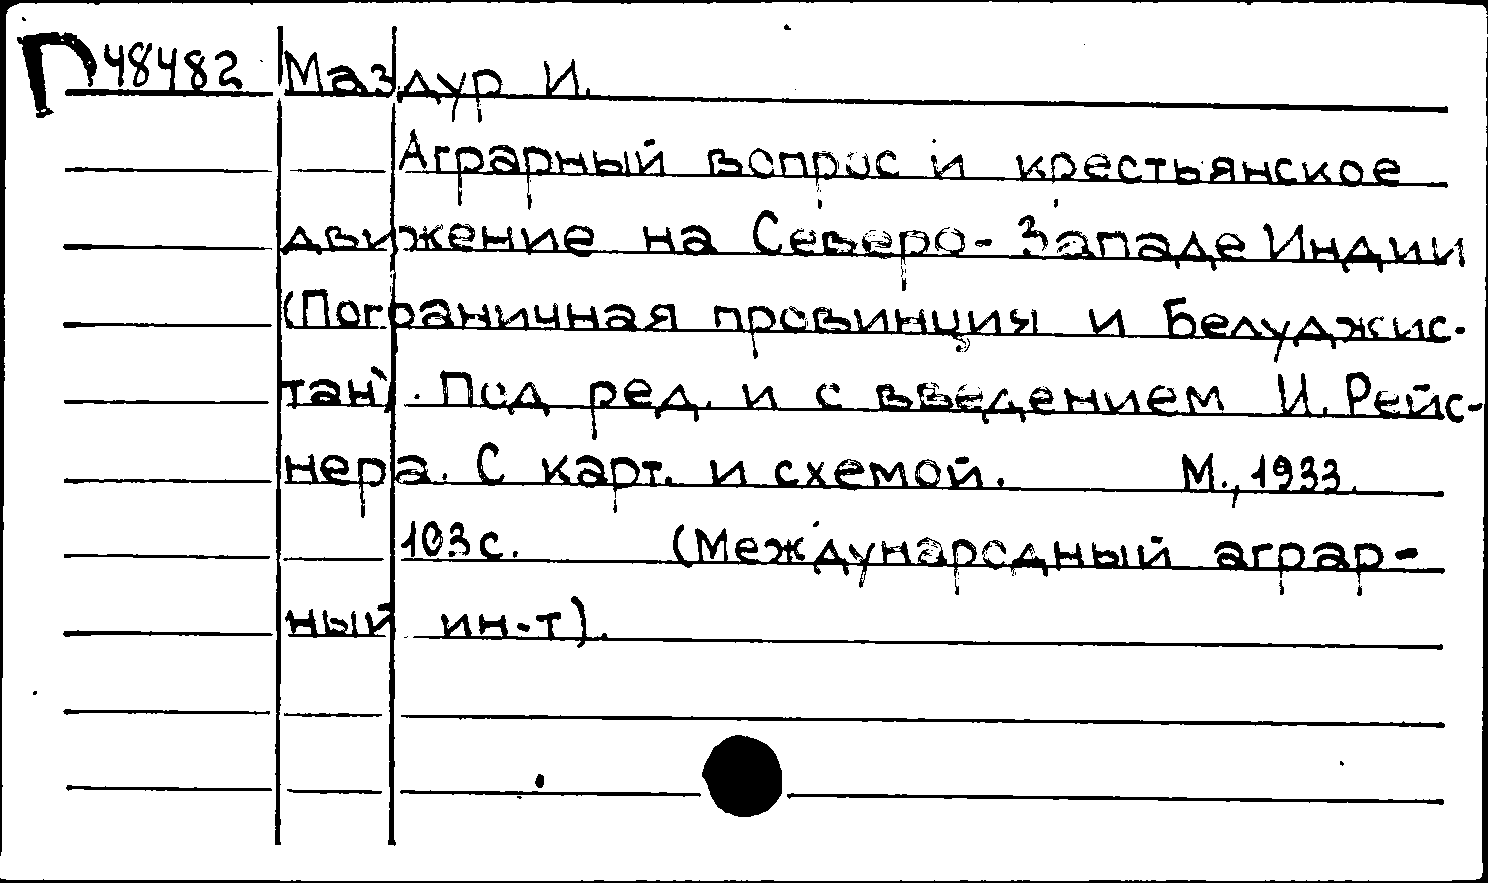 П48482 Маздур И.
Аграрный вопрос и крестьянское
движение на Северо-Западе Индии
(Пограничная провинция и Белуджис-
тан). Под ред. и с введением И. Рейс-
нера. С карт. и схемой. М., 1933.
103 с. (Международный аграр-
ный ин-т).